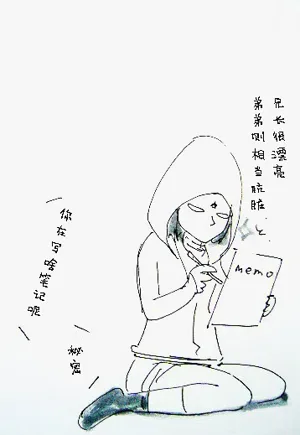 兄长很漂亮
弟弟则相当肮脏と
memo
你在写啥笔记呢
秘密